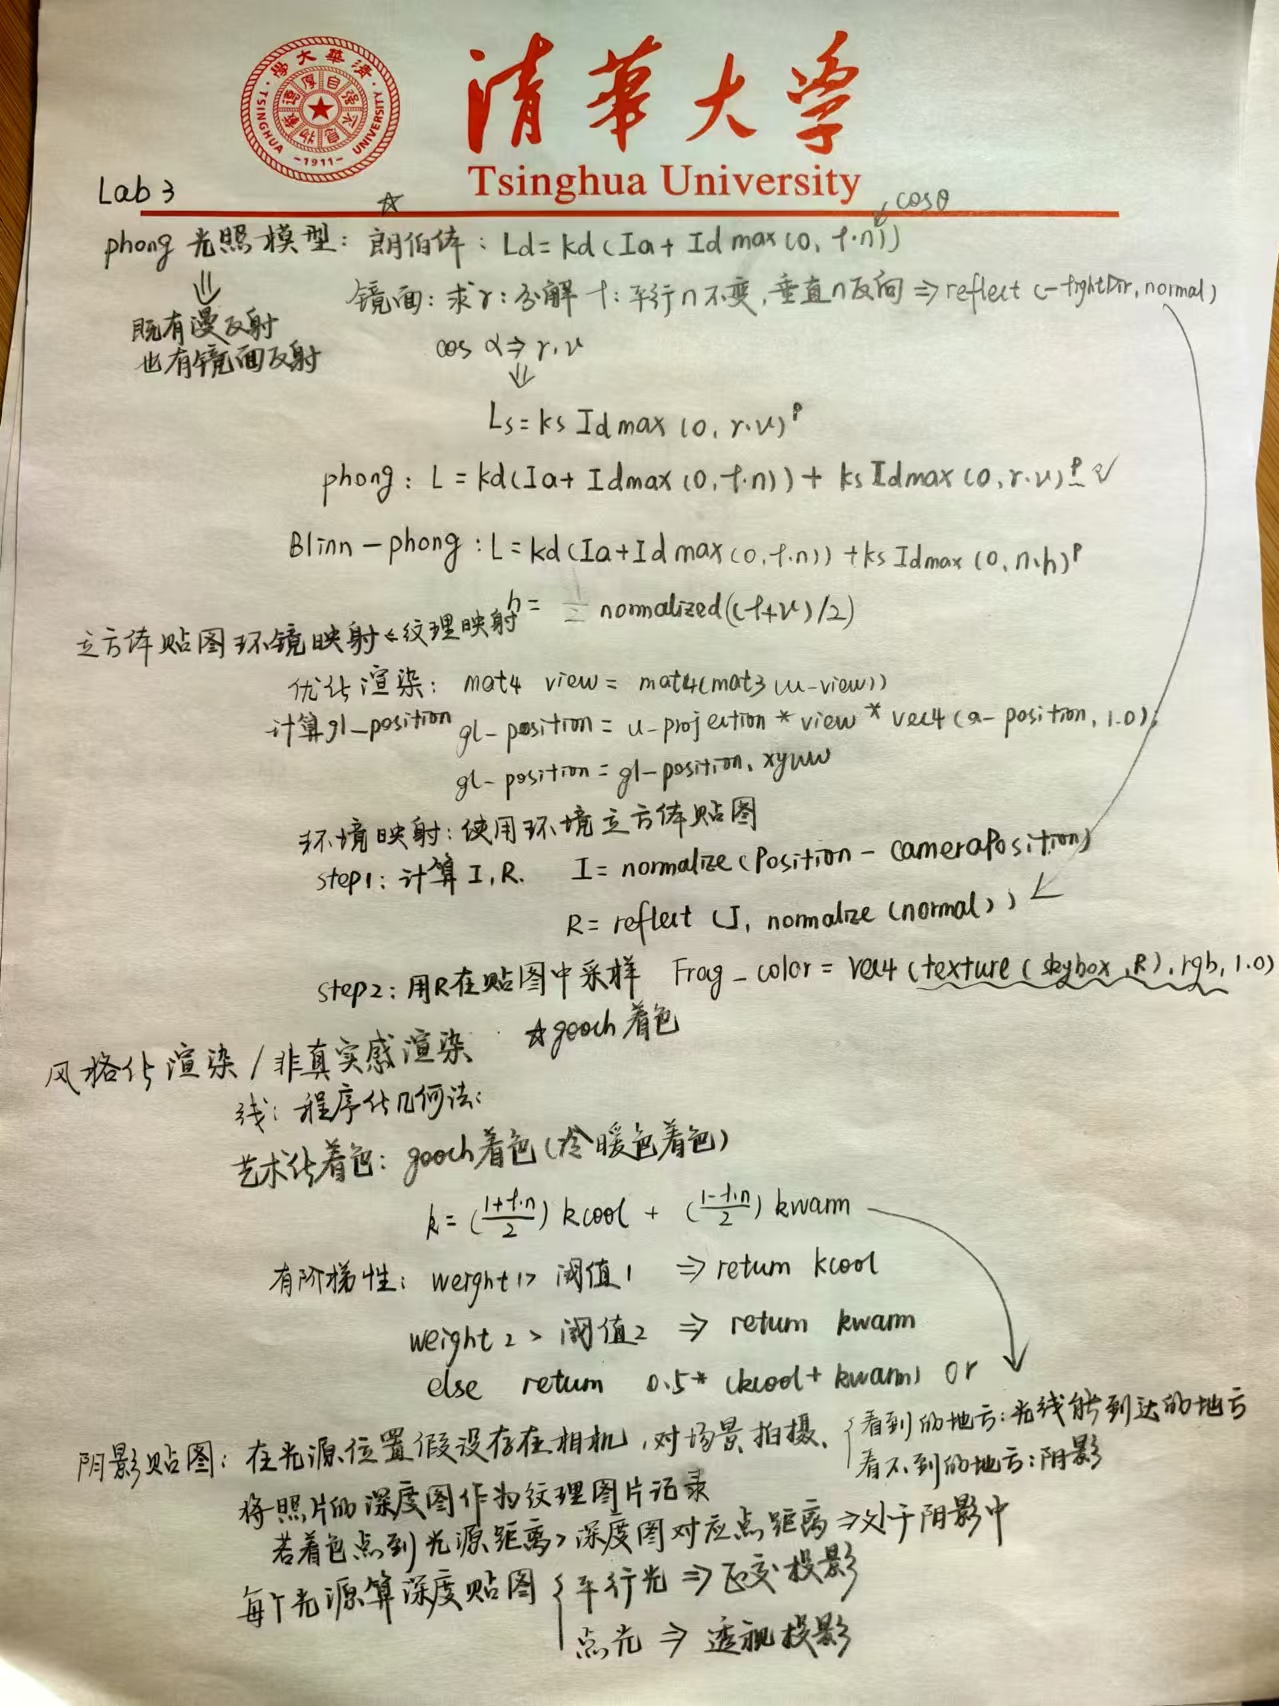 清华大学
Tsinghua University
學大華清
TSINGHUA UNIVERSITY
自强不息厚德载物
-1911-
Lab 3
☆
cosθ
phong 光照模型: 朗伯体: Ld=kd(Ia+Id max(0, l·n))
⇓
既有漫反射
也有镜面反射
镜面: 求r: 分解 l: 平行n不变, 垂直n反向 ⇒ reflect (-lightDir, normal)
cos α ⇒ r·v
⇓
Ls=ks Id max (0, r·v)^p
phong: L=kd(Ia+Idmax(0,l·n))+ ks Idmax(0,r·v)^p √
Blinn-phong: L=kd(Ia+Idmax(0,l·n))+ks Idmax(0,n·h)^p
h= normalized((l+v)/2)
立方体贴图环镜映射←纹理映射
优化渲染: mat4 view= mat4(mat3(u-view))
计算gl-position gl-position = u-projection * view * vec4(a-position, 1.0);
gl-position = gl-position.xyww
环境映射: 使用环境立方体贴图
step1: 计算 I,R. I= normalize(Position - cameraPosition)
R= reflect (I, normalize(normal))
step2: 用R在贴图中采样 Frag_color = vec4(texture(skybox,R).rgb,1.0)
风格化渲染/非真实感渲染 ☆gooch着色
线: 程序化几何法:
艺术化着色: gooch着色(冷暖色着色)
k=(1+l·n/2) kcool + (1-l·n/2) kwarm
有阶梯性: weight1> 阈值1 ⇒ return kcool
weight2> 阈值2 ⇒ return kwarm
else return 0.5* (kcool+kwarm) or
阴影贴图: 在光源位置假设存在相机, 对场景拍摄、{看到的地方: 光线能到达的地方
看不到的地方: 阴影
将照片的深度图作为纹理图片记录
若着色点到光源距离>深度图对应点距离⇒处于阴影中
每个光源算深度贴图 {平行光⇒正交投影
点光 ⇒ 透视投影